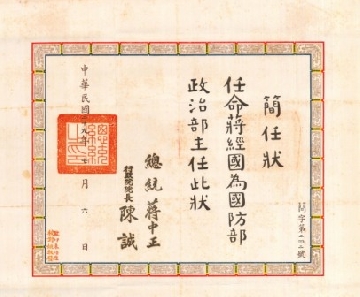 簡任狀
任命蔣經國為國防部
政治部主任此狀
總統 蔣中正
行政院院長 陳誠
中華民國三十九年 月六日